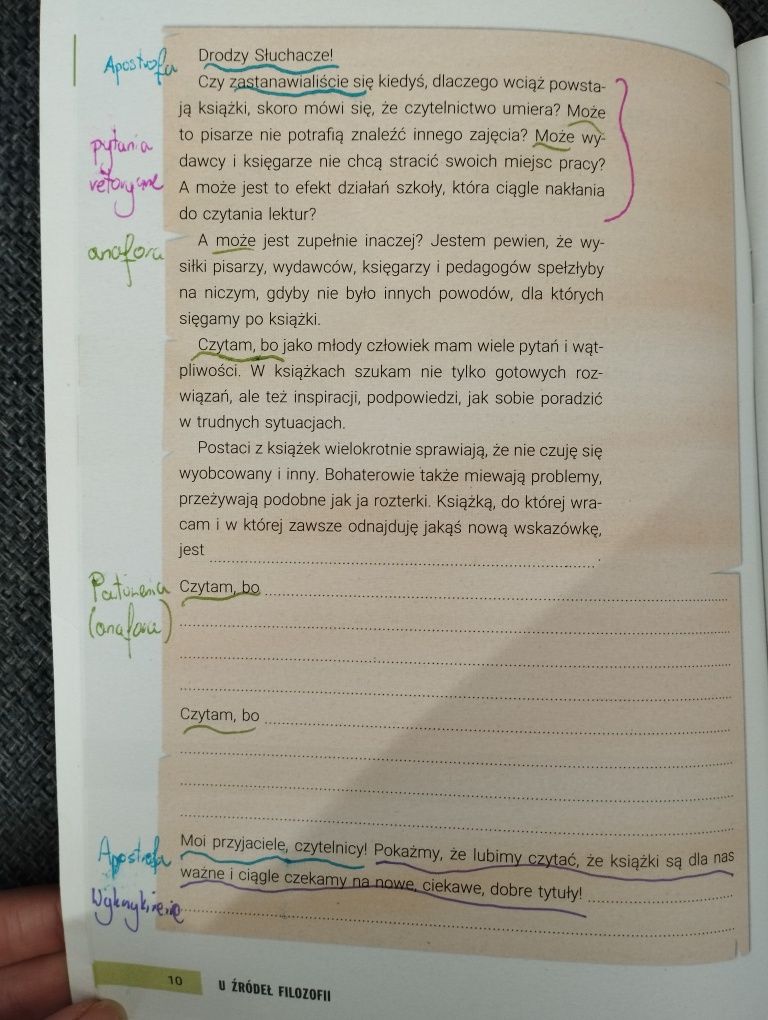 Apostrofa Drodzy Słuchacze!
Czy zastanawialiście się kiedyś, dlaczego wciąż powsta-
ją książki, skoro mówi się, że czytelnictwo umiera? Może
to pisarze nie potrafią znaleźć innego zajęcia? Może wy-
pytania
dawcy i księgarze nie chcą stracić swoich miejsc pracy?
retoryczne
A może jest to efekt działań szkoły, która ciągle nakłania
do czytania lektur?
anafora
A może jest zupełnie inaczej? Jestem pewien, że wy-
siłki pisarzy, wydawców, księgarzy i pedagogów spełzłyby
na niczym, gdyby nie było innych powodów, dla których
sięgamy po książki.
Czytam, bo jako młody człowiek mam wiele pytań i wąt-
pliwości. W książkach szukam nie tylko gotowych roz-
wiązań, ale też inspiracji, podpowiedzi, jak sobie poradzić
w trudnych sytuacjach.
Postaci z książek wielokrotnie sprawiają, że nie czuję się
wyobcowany i inny. Bohaterowie także miewają problemy,
przeżywają podobne jak ja rozterki. Książką, do której wra-
cam i w której zawsze odnajduję jakąś nową wskazówkę,
jest
Czytam, bo
(anafora)
Czytam, bo
Moi przyjaciele, czytelnicy! Pokażmy, że lubimy czytać, że książki są dla nas
Apostrofa
ważne i ciągle czekamy na nowe, ciekawe, dobre tytuły!
10 U ŹRÓDEŁ FILOZOFII